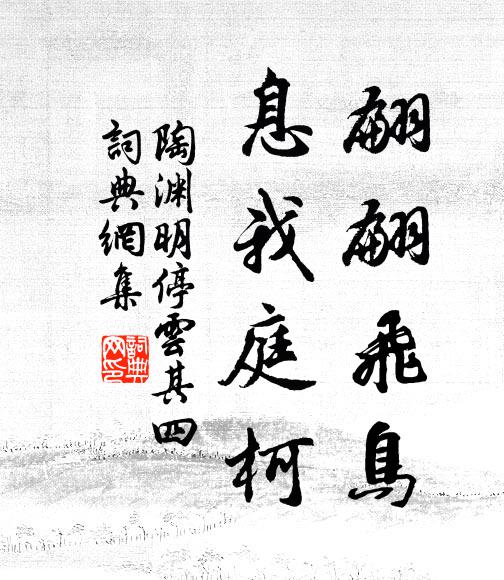 翩翩飛鳥
息我庭柯
陶淵明停雲其四
詞典網集
詞典
网印